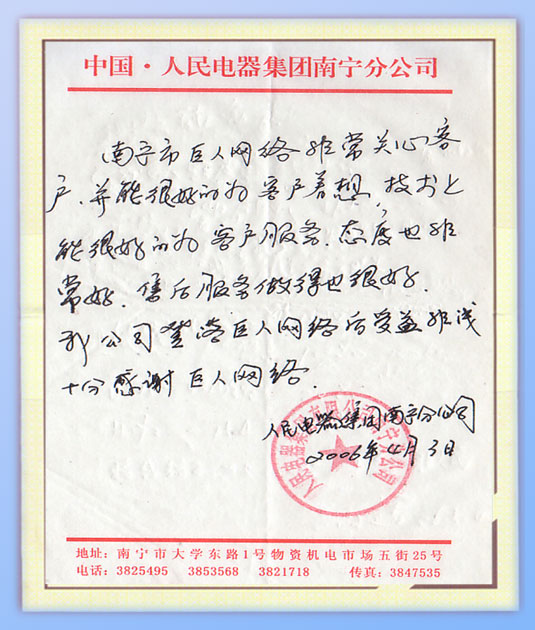 中国·人民电器集团南宁分公司
南宁市巨人网络非常关心客
户、并能很好的为客户着想,技术上
能很好的为客户服务.态度也非
常好.售后服务做得也很好.
我公司登录巨人网络后受益非浅
十分感谢巨人网络.
人民电器集团南宁分公司
2006年4月3日
地址:南宁市大学东路1号物资机电市场五街25号
电话:3825495 3853568 3821718 传真:3847535